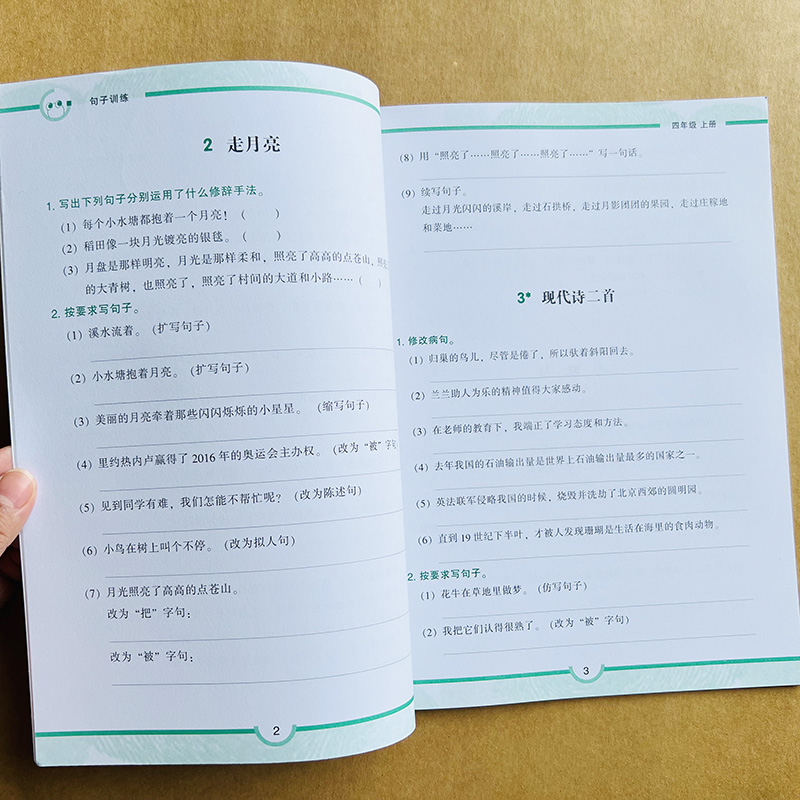 句子训练
2 走月亮
1. 写出下列句子分别运用了什么修辞手法。
(1) 每个小水塘都抱着一个月亮！（ ）
(2) 稻田像一块月光镀亮的银毯。（ ）
(3) 月盘是那样明亮，月光是那样柔和，照亮了高高的点苍山，照亮
的大青树，也照亮了，照亮了村间的大道和小路……（ ）
2. 按要求写句子。
(1) 溪水流着。（扩写句子）
(2) 小水塘抱着月亮。（扩写句子）
(3) 美丽的月亮牵着那些闪闪烁烁的小星星。（缩写句子）
(4) 里约热内卢赢得了 2016 年的奥运会主办权。（改为“被”字句
(5) 见到同学有难，我们怎能不帮忙呢？（改为陈述句）
(6) 小鸟在树上叫个不停。（改为拟人句）
(7) 月光照亮了高高的点苍山。
改为“把”字句：
改为“被”字句：
2
四年级 上册
(8) 用“照亮了……照亮了……照亮了……”写一句话。
(9) 续写句子。
走过月光闪闪的溪岸，走过石拱桥，走过月影团团的果园，走过庄稼地
和菜地……
3* 现代诗二首
1. 修改病句。
(1) 归巢的鸟儿，尽管是倦了，所以驮着斜阳回去。
(2) 兰兰助人为乐的精神值得大家感动。
(3) 在老师的教育下，我端正了学习态度和方法。
(4) 去年我国的石油输出量是世界上石油输出量最多的国家之一。
(5) 英法联军侵略我国的时候，烧毁并洗劫了北京西郊的圆明园。
(6) 直到 19 世纪下半叶，才被人发现珊瑚是生活在海里的食肉动物。
2. 按要求写句子。
(1) 花牛在草地里做梦。（仿写句子）
(2) 我把它们认得很熟了。（改为“被”字句）
3